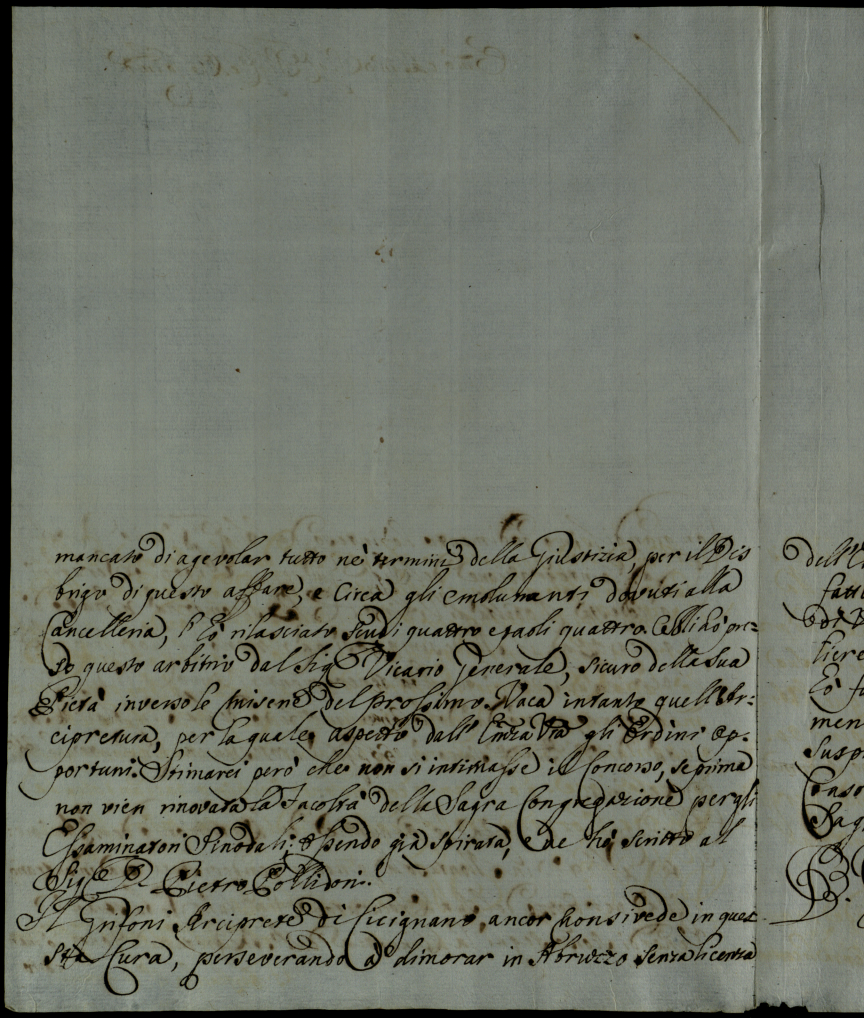 mancato di agevolar tutto ne' termini della Giustizia, per il Dis
brigo di questo affare, e Circa gli emolumenti dovuti alla
Cancelleria, l'hò rilasciato Scudi quattro e paoli quattro hò pre=
so questo arbitrio dal Sig.r Vicario Generale, sicuro della sua
Pietà inverso le miserie del prossimo. Vaca intanto quell'Ar=
cipretura, per la quale aspetto dall' Emza Vra gli Ordini op=
portuni. Stimarei però che non si intimasse il Concorso, se prima
non vien rinovata la Facoltà della Sagra Congregazione per gli
Essaminatori Sinodali, essendo già spirata, e ne hò scritto al
Sig.r D. Pietro Pollidori.
Il Grifoni Arciprete di Cicignano ancor non si vede in que
sta Cura, perseverando à dimorar in Abruzzo senza licenza
dell'
fatt
di
liere
hò f
men
Susp
Conso
Sag